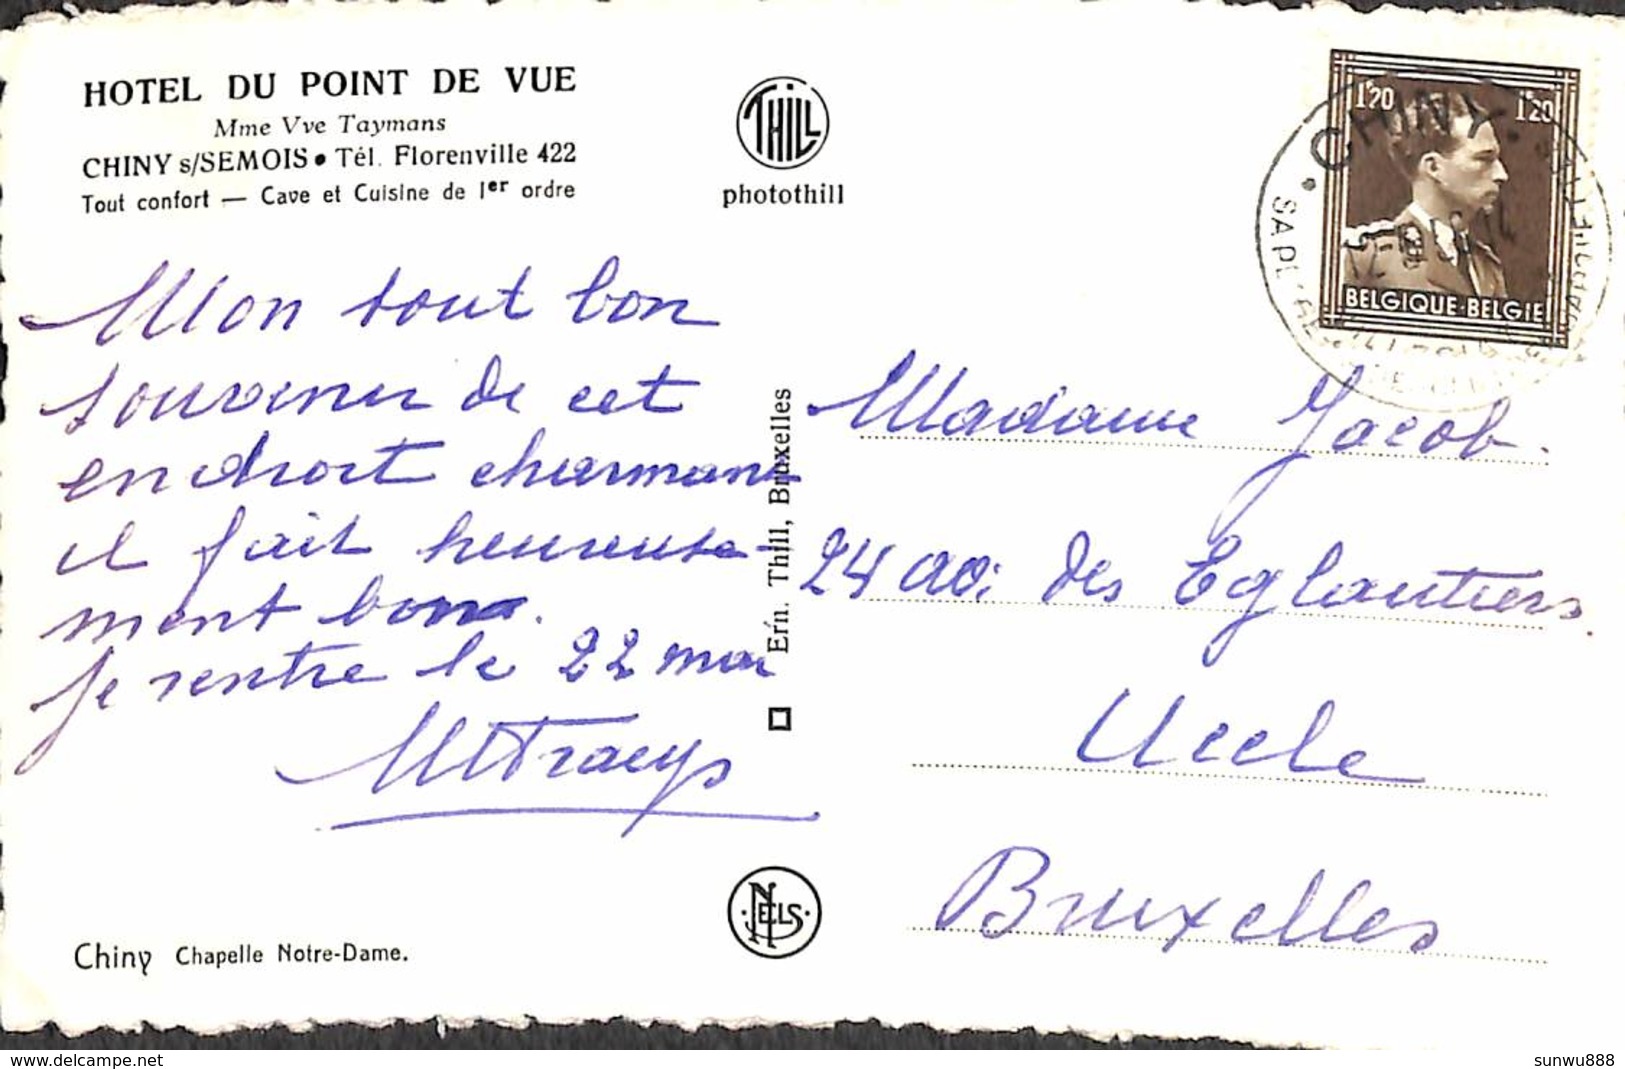 HOTEL DU POINT DE VUE
Mme Vve Taymans
CHINY s/SEMOIS • Tél. Florenville 422
Tout confort — Cave et Cuisine de 1er ordre
THILL
photothill
1F20 1F20
BELGIQUE-BELGIE
CHINY
Mon tout bon
souvenir de cet
endroit charmant
il fait heureuse-
ment bon.
Je rentre le 22 mai
Ern. Thill, Bruxelles
Madame Jacob.
24 av. des Eglantiers.
Uccle
Bruxelles
NELS
Chiny Chapelle Notre-Dame.
www.delcampe.net
sunwu888